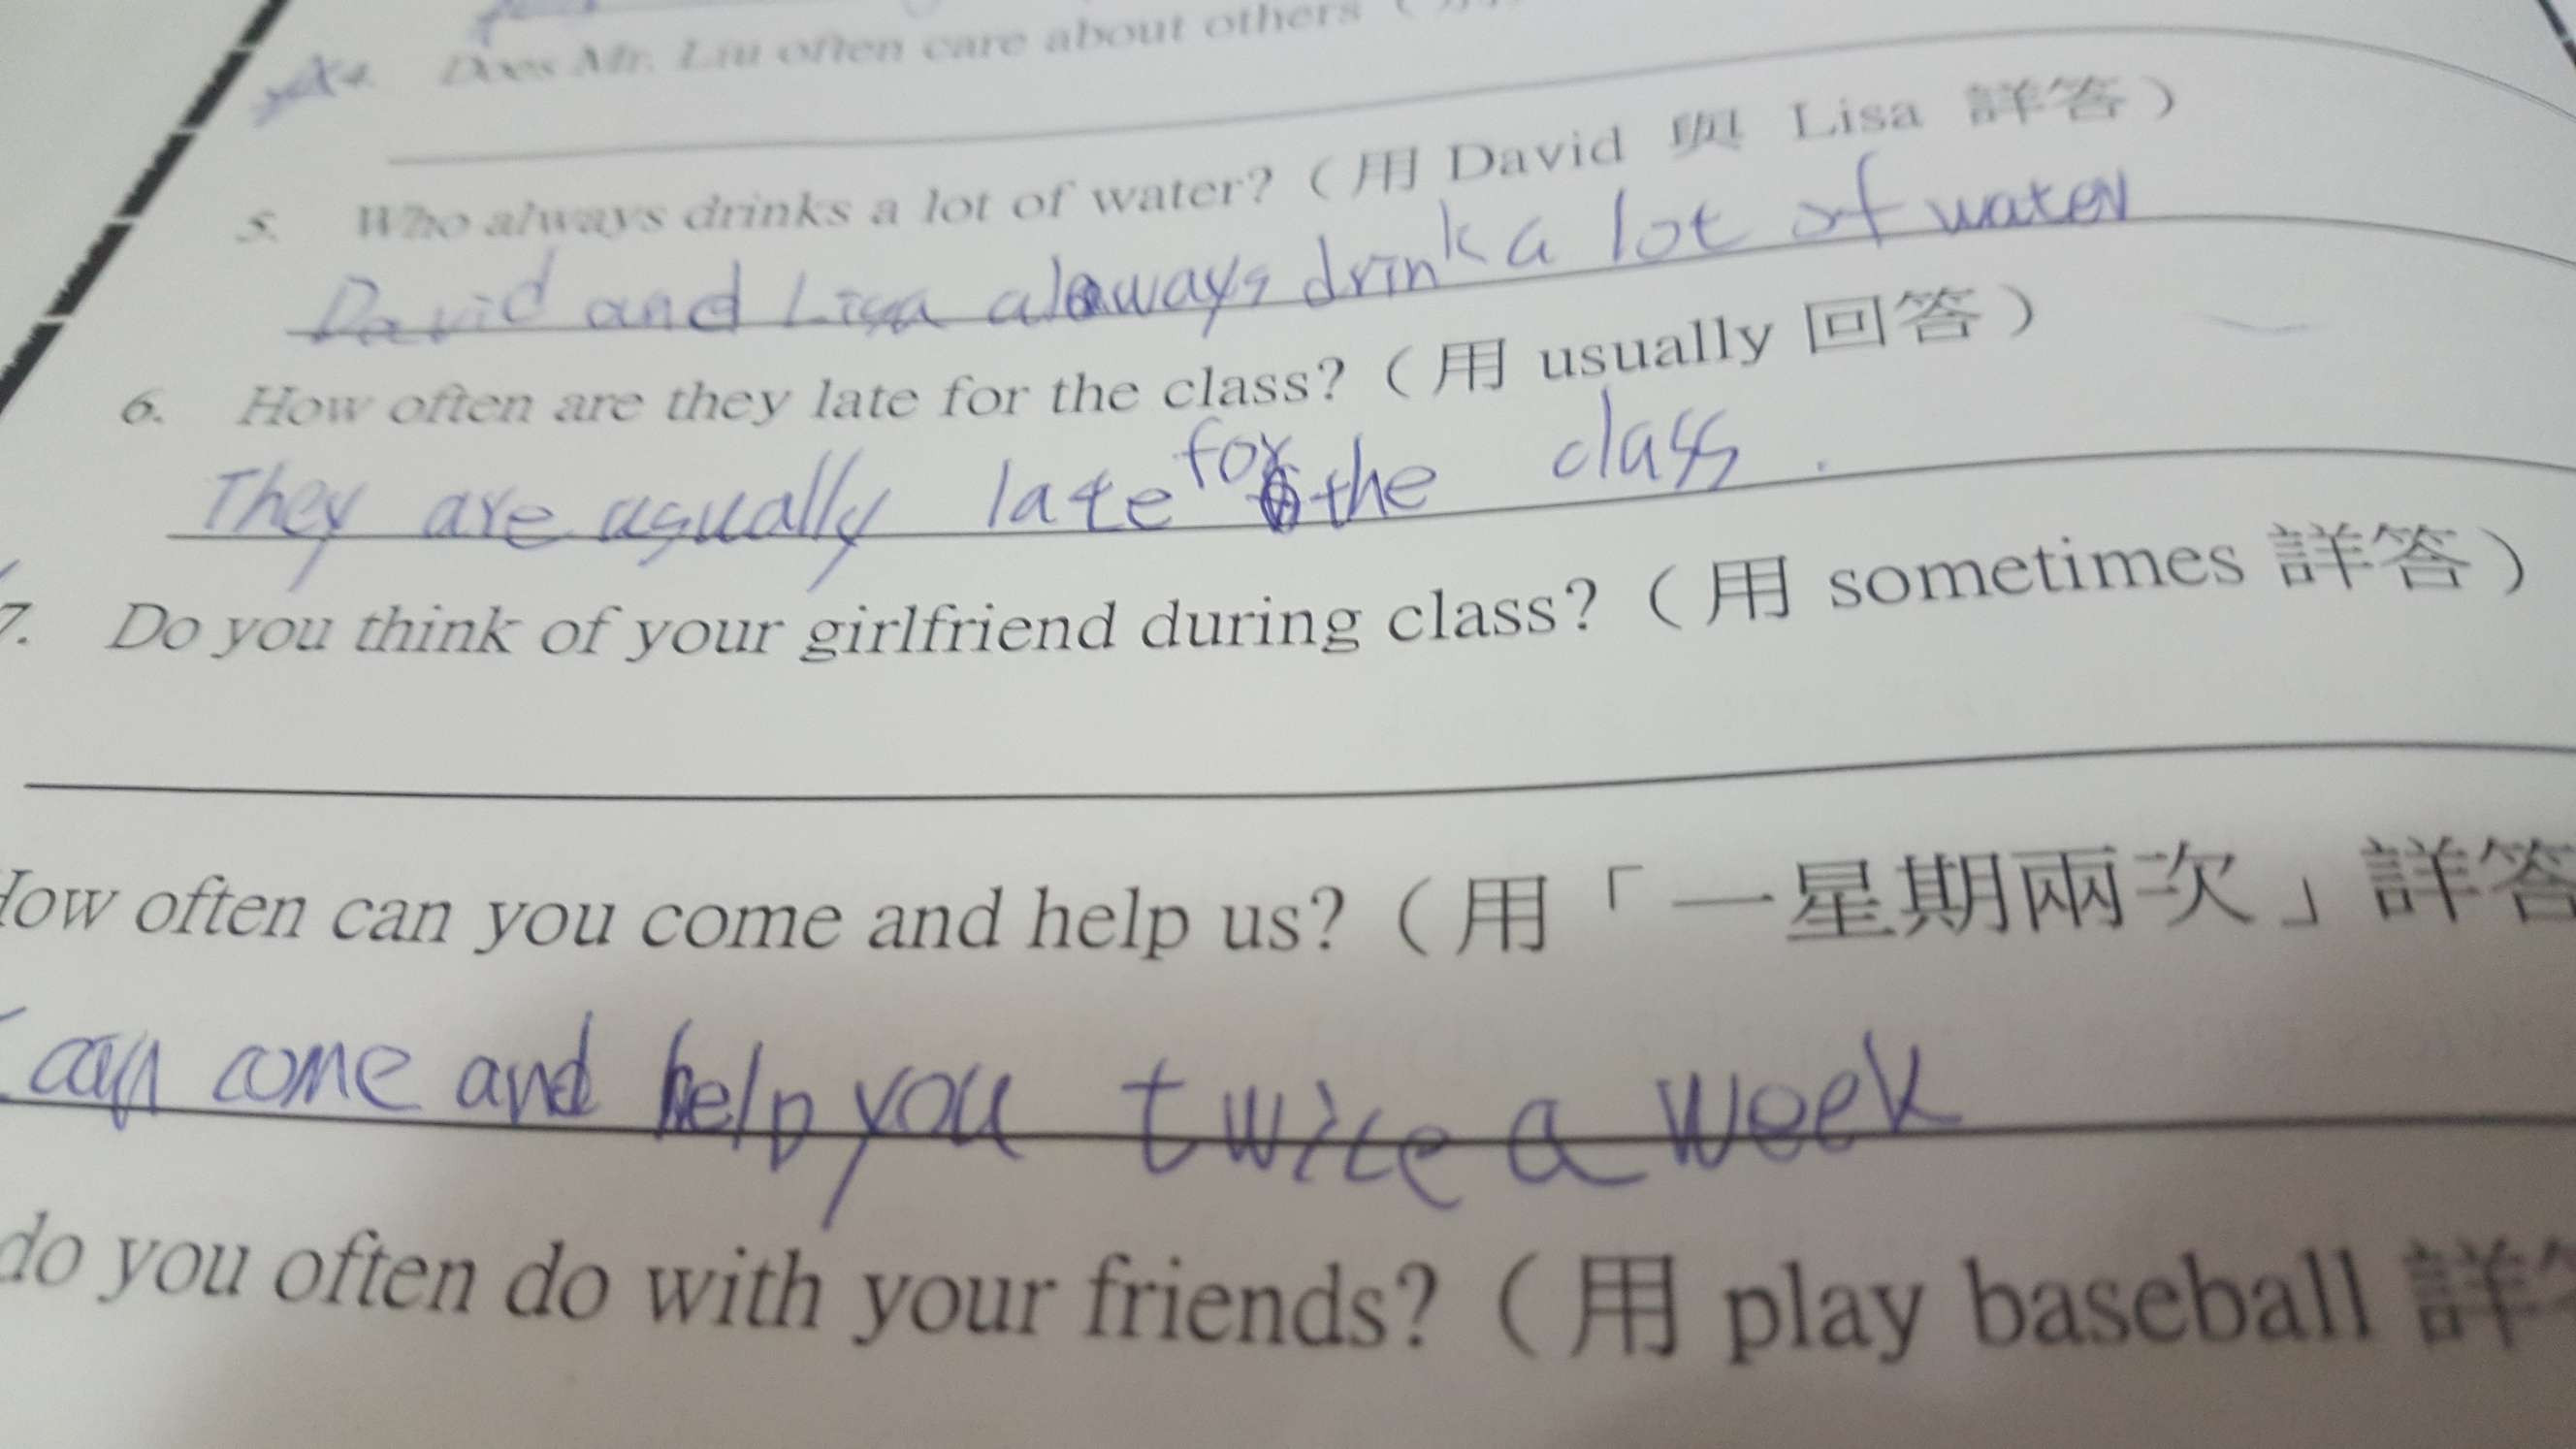 4. Does Mr. Liu often care about others (
5. Who always drinks a lot of water? (用 David 與 Lisa 詳答)
David and Lisa always drink a lot of water
6. How often are they late for the class? (用 usually 回答)
They are usually late for the class.
7. Do you think of your girlfriend during class? (用 sometimes 詳答)
How often can you come and help us? (用「一星期兩次」詳答
I can come and help you twice a week
do you often do with your friends? (用 play baseball 詳答